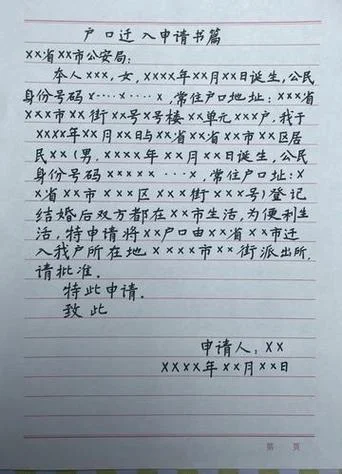 户口迁入申请书篇
××省××市公安局:
本人×××,女,××××年××月××日诞生,公民
身份号码×…×…×,常住户口地址:×××省
×××市××街××号×号楼××单元×××户,我于
××××年××月××日与××省××省××市××区居
民××(男,××××年××月××日诞生,公民
身份号码×××××…×,常住户口地址:×
×省××市×××区×××街×××号)登记
结婚后双方都在××市生活,为便利生
活,特申请将××户口由××省××市迁
入我户所在地××××市××街派出所,
请批准.
特此申请.
致此
申请人:××
××××年××月××日
第 页